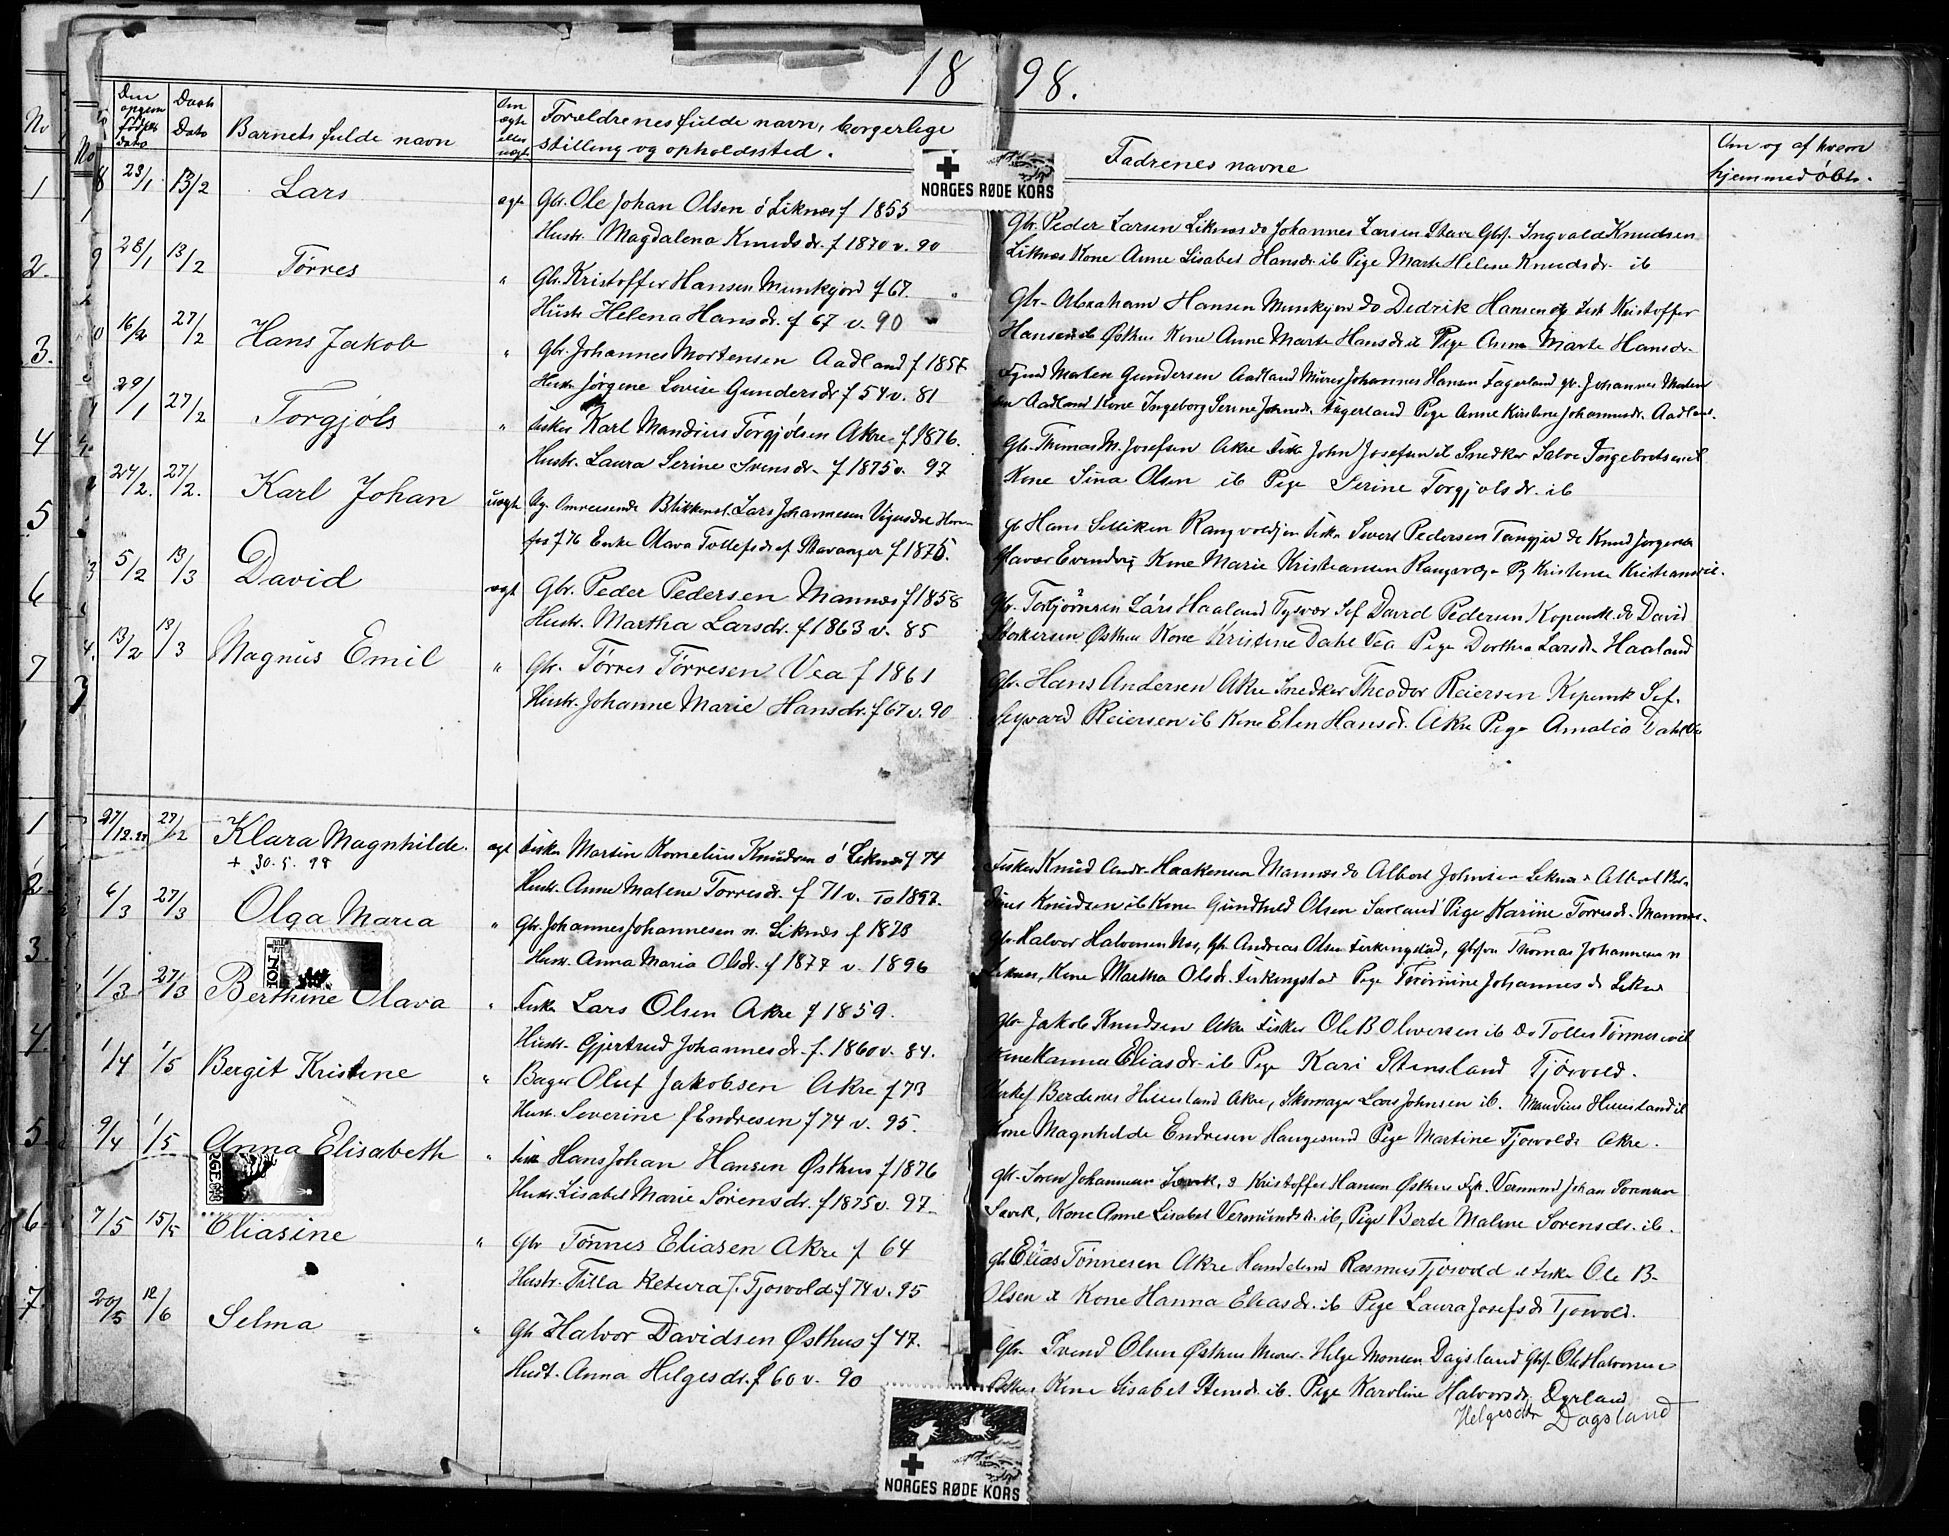 18 98.
No
Den opgivn fødsels dato
Daab Dato
Barnets fulde navn
Om ægte eller uægt
Forældrenes fulde navn, borgerlige stilling og opholdssted.
Fadrenes navne
Om og af hvem hjemmedøbt.
NORGES RØDE KORS
1 8 23/1 13/2 Lars ægte Gbr. Ole Johan Olsen ö Liknes f 1855
Hustr. Magdalena Knudsdr. f 1870 v. 90
Gbr. Peder Larsen Liknes do Johannes Larsen Stave Gbrs. Ingvald Knudsen
Liknes Kone Anne Lisabet Hansdr. ib Pige Marte Helene Knudsdr. ib
2. 9 28/1 13/2 Tørres " Gbr. Kristoffer Hansen Munkejord f 67. "
Hustr. Helena Hansdr. f 67 v. 90
Gbr. Abraham Hansen Munkejor do Dedrik Hansen Kristoffer
Hansen ib Østhus Kone Anne Marte Hansdr ib Pige Anna Marte Hansdr.
3. 0 16/2 27/2 Hans Jakob " Gbr. Johannes Mortensen Aadland f 1857
Hustr. Jørgene Lovise Gundersdr f 54 v. 81
Gundersen Aadland Murer Johannes Hansen Fagerland gb. Johannes
Aadland Kone Ingeborg Serine Johnsdr. Fagerland Pige Anne Kirstine Johannesdr. Aadland.
4 29/1 27/2 Torgjøls " Fisker Karl Mandius Torgjølsen Akre f 1876.
Hustr. Laura Serine Svensdr. f 1875 v. 97
Gbr. Thomas M. Josefsen Akre Fisk John Josefsen ib Snedker Salve Ingebretsen ib
Kone Sina Olsen ib Pige Serine Torgjølsdr. ib
5 24/2. 27/2. Karl Johan uægte Ug. Omreisende Blikkensl. Lars Johannesen Vigesdal
f 76 Enke Olava Tollefsdr af Stavanger f 1875.
gb Hans Selliken Rangvoldjen Fisker Sivert Pedersen Tangjer do Knud Jørgensen
Kone Marie Kristiansen Pg Kristense Kristiansen ib.
6 3 5/2 13/3 David ægt Gbr. Peder Pedersen Mannes f 1858
Hustr. Martha Larsdr. f 1863 v. 85
Gbr. Torbjørnsen Lars Haaland Tysvær Sef David Pedersen Kopervik do David
Storkersen Østhus Kone Kristine Dahl Vea Pige Dorthea Larsdr Haaland
7 4. 13/2 13/3 Magnus Emil " Gbr. Tørres Tørresen Vea f 1861
Hustr. Johanne Marie Hansdr. f 67 v. 90
Gbr. Hans Andersen Akre Snedker Theodor Reiersen Kopervik Sef.
Segvard Reiersen ib Kone Elen Hansdr. Akre Pige Amalia Dahl Vea
1 27/12.97 27/2 Klara Magnhilde. ægt Fisker Martin Kornelius Knudsen ö Liknes f 74
+ 30. 5. 98
Hustr. Anne Malene Tørresdr. f 71 v. 1897.
Fisker Knud Andr. Haakonsen Mannes do Albert Johnsen Liknes Albert
Knudsen ib Kone Gundhild Olsen Sørland Pige Karine Torresdr. Mannes.
2 6/3 27/3 Olga Maria " Gbr. Johannes Johannesen n. Liknes f 1873
Hustr. Anna Maria Olsdr. f 1877 v. 1896
gbr. Halvor Halvorsen Nes, gbr. Andreas Olsen Ferkingstad, gbrs. Thomas Johannesen n
Liknes, Kone Martha Olsdr. Ferkingstad Pige Tomine Johannesdr Liknes
3. 1/3 27/3 Berthine Olava " Fisker Lars Olsen Akre f 1859.
Hustr. Gjertrud Johannesdr. f. 1860 v. 84.
gbr Jakob Knudsen Akre Fisker Ole B Oliversen ib do Tolles Tønnesen ib
Kone Hanna Eliasdr. ib Pige Kari Stensland Tjøsvold.
4. 1/4 1/5 Bergit Kristine " Bager Oluf Jakobsen Akre f 73
Hustr. Severine f Endresen f 74 v. 95.
Berdenes Hemesland Akre, Skomager Lars Johnsen ib. Mandius Hemesland ib
Kone Magnhilde Endresen Haugesund Pige Martine Tjøsvold Akre.
5. 9/4 1/5 Anna Elisabeth " Fisk Hans Johan Hansen Østhus f 1876
Hustr. Lisabet Marie Sørensdr. f 1875 v. 97.
gbr. Søren Johannesen Sævik, do Kristoffer Hansen Østhus Fisk. Vermund Johan Sørensen
Sævik, Kone Anne Lisabet Vermundsdr. ib, Pige Berte Malene Sørensdr. ib.
6. 7/5 15/5 Eliasine " Gbr Tønnes Eliasen Akre f 64
Hustr. Titla Retura J. Tjøsvold f 74 v. 95
gb Elias Tønnesen Akre Handelsmd Rasmus Tjøsvold Fisker Ole B.
Olsen Kone Hanna Eliasdr. ib Pige Laura Josefsdr Tjøsvold.
7. 20/5 12/6 Selma " Gbr Halvor Davidsen Østhus f 47.
Hust. Anna Helgesdr. f 60 v. 90
Gbr. Svend Olsen Østhus Murer. Helge Monsen Dagsland gbrs. Ole Halvorsen
Kone Lisabet Stensdr. ib. Pige Karoline Halvorsdr. Dyrland
Helgesdtr Dagsland
NORGES RØDE KORS